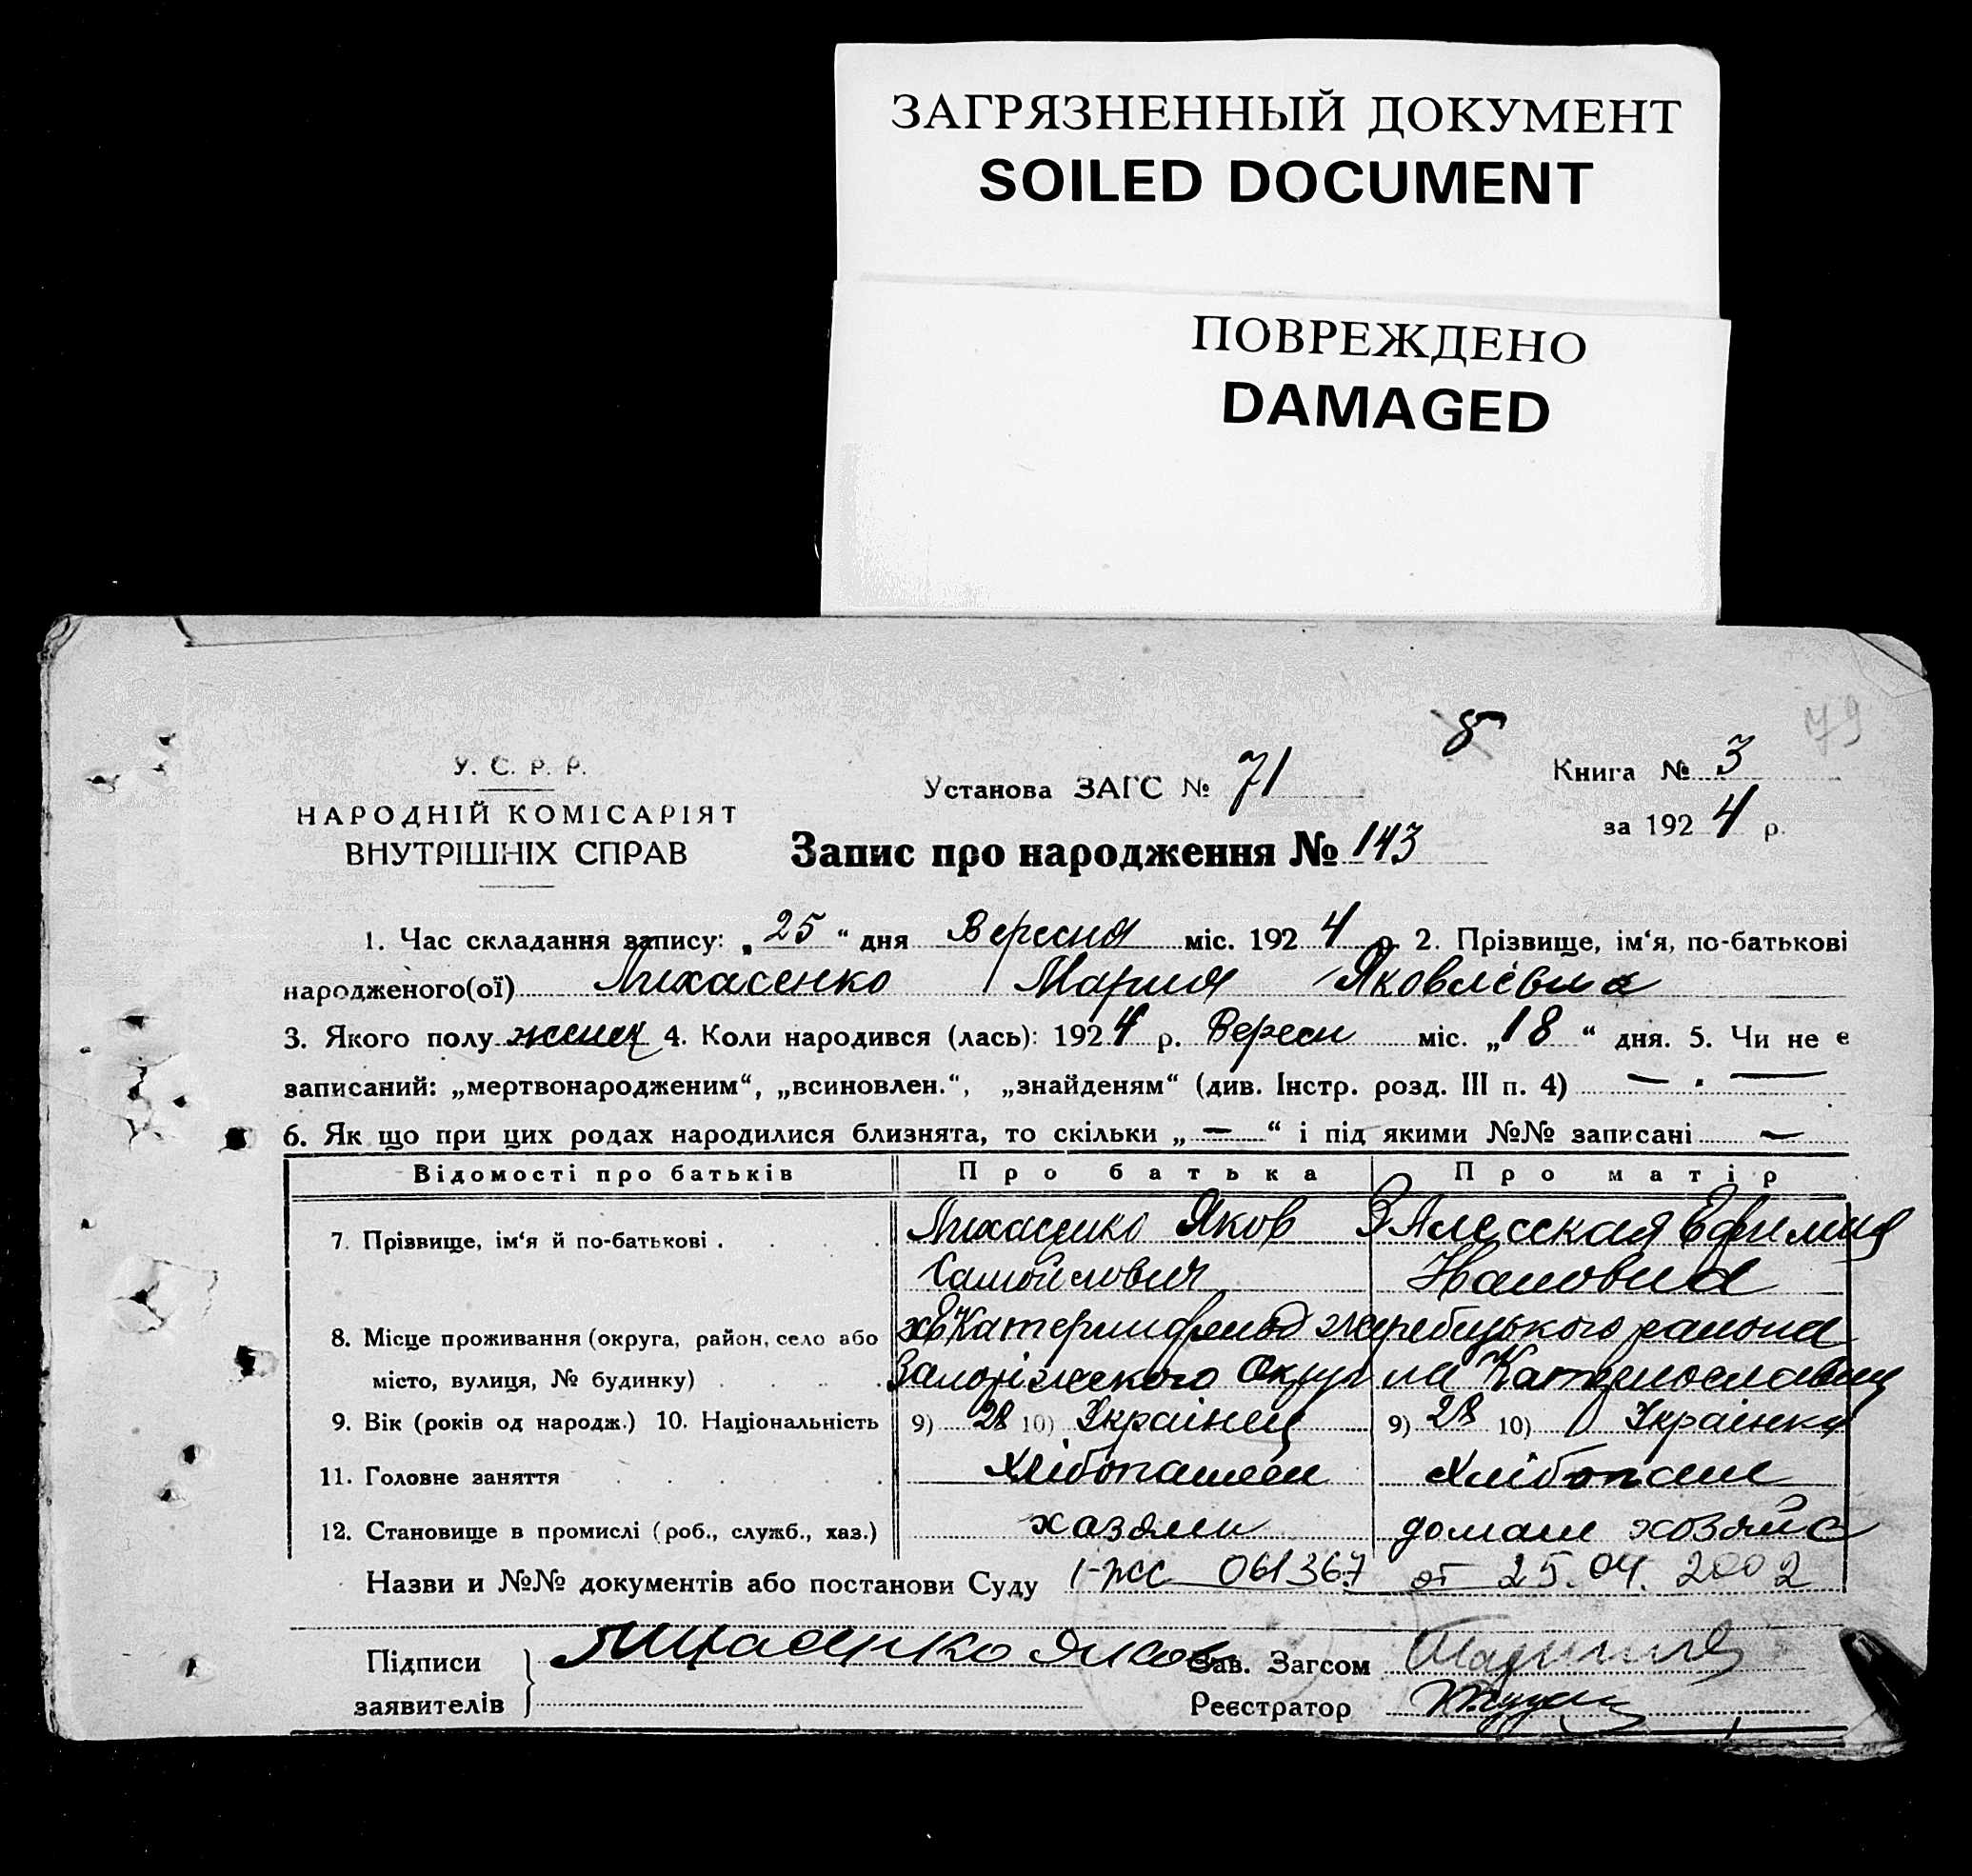 ЗАГРЯЗНЕННЫЙ ДОКУМЕНТ
SOILED DOCUMENT
ПОВРЕЖДЕНО
DAMAGED
8
79
У. С. Р. Р.
НАРОДНІЙ КОМІСАРІЯТ
ВНУТРІШНІХ СПРАВ
Установа ЗАГС № 71
Книга № 3
за 1924 р.
Запис про народження № 143
1. Час складання запису: „25“ дня Вересня міс. 1924 р. 2. Прізвище, ім‘я, по-батькові
народженого(ої) Лихасенко Мария Яковлевна
3. Якого полу 4. Коли народився (лась): 1924 р. Вересн міс. „18“ дня. 5. Чи не є
записаний: „мертвонародженим“, „всиновлен.“, „знайденям“ (див. Інстр. розд. III п. 4) — . —
6. Як що при цих родах народилися близнята, то скільки „—“ і під якими №№ записані —
Відомості про батьків Про батька Про матір
7. Прізвище, ім‘я й по-батькові . Лихасенко Яков ЗАлесская Ефимия
Самойлович
8. Місце проживання (округа, район, село або жеребецького района
місто, вулиця, № будинку) Запоріжского Округ на Катеринославщ
9. Вік (років од народж.) 10. Національність 9) 28 10) Українец 9) 28 10) Українка
11. Головне заняття Хлібопашец Хлібопаш
12. Становище в промислі (роб., служб., хаз.) хазяин домаш хозяйс
Назви и №№ документів або постанови Суду I-ЖС 061367 от 25.04.2002
Підписи Лихасенко Яков Зав. Загсом
заявителів Реєстратор